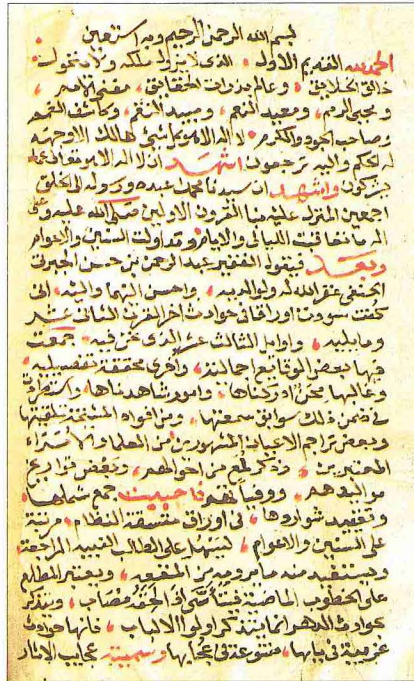 بسم الله الرحمن الرحيم وبه استعين
الحمد لله القديم الاول ، الذى لا يزول ملكه ولا يتحول
خالق الخلايق ، وعالم بذرات الحقائق ، مفنى الامم ،
ومحيى الرمم ، ومعيد النعم ، ومبيد النقم ، وكاشف الغمم
وصاحب الجود والكرم ، لا اله الا هو كل شئ هالك الا وجهه
له الحكم واليه ترجعون ، اشهد ان لا اله الا هو تعالى عما
يشركون واشهد ان سيدنا محمدا عبده ورسوله الى الخلق
اجمعين المنزل عليه نبا القرون الاولين صلى الله عليه وعلى
اله ما تعاقبت الليالى والايام وتداولت السنين والاعوام
وبعد فيقول الفقير عبد الرحمن بن حسن الجبرتى
الحنفى غفر الله له ولوالديه ، واحسن اليهما واليه ، انى
كنت سودت اوراقا فى حوادث اخر القرن الثانى عشر
وما يليه ، واوايل الثالث عشر الذى نحن فيه ، جمعت
فيها بعض الوقايع اجمالية ، واخرى محققة تفصيلية ،
وغالبها محن ادركناها ، وامور شاهدناها ، واستطردت
فى ضمن ذلك سوابق سمعتها ، ومن افواه المشيخة تلقيتها
وبعض تراجم الاعيان المشهورين من العلما والامراء
المعتبرين ، وذكر لمع من اخبارهم ، وبعض تواريخ
مواليدهم ، ووفياتهم فاحببت جمع شملها ،
وتقييد شواردها ، فى اوراق متسقة النظام ، مرتبة
على السنين والاعوام ، ليسهل على الطالب النبيه المراجعة
ويستفيد منه ما يرومه من المنفعه ، ويعتبر المطلع
على الخطوب الماضية فيتأسى اذا لحقه مصاب ، ويتذكر
بحوادث الدهر انما يتذكر اولوا الالباب ، فانها حوادث
غريبة فى بابها ، متنوعة فى عجايبها وسميته عجايب الاثار